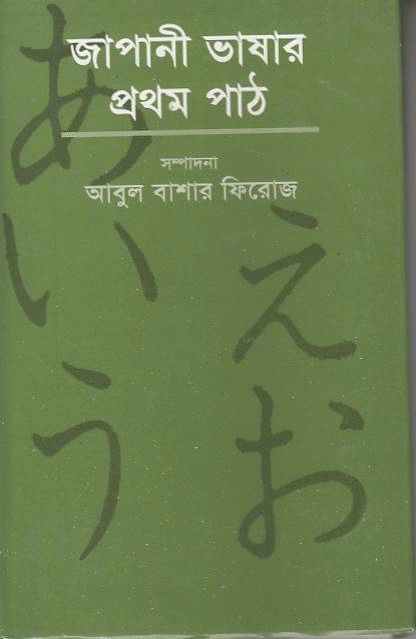 জাপানী ভাষার
প্রথম পাঠ
সম্পাদনা
আবুল বাশার ফিরোজ
あ
い
う
え
お